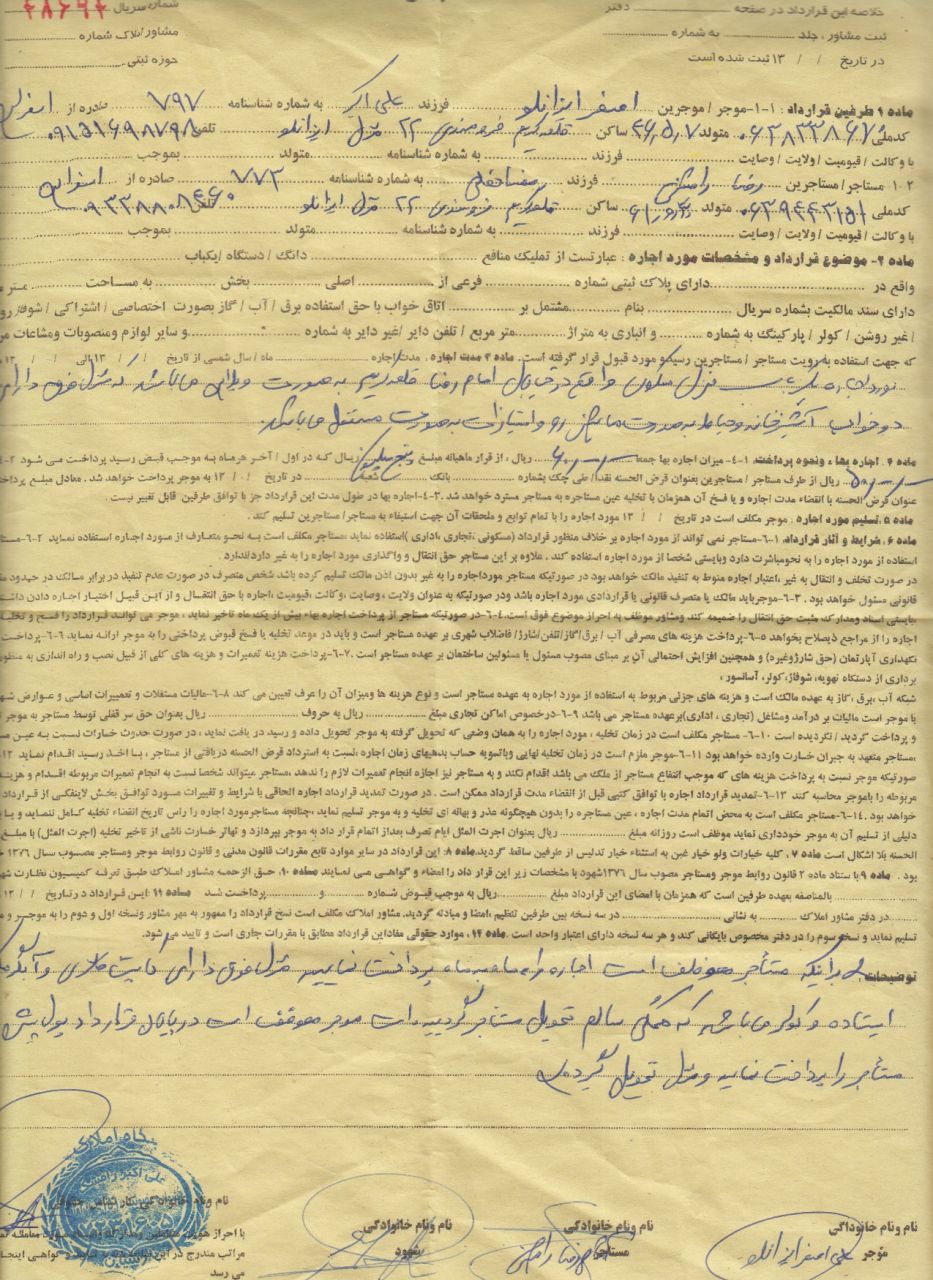 خلاصه این قرارداد در صفحه ........ دفتر ........
ثبت مشاور ، جلد ........ به شماره ........
در تاریخ / / ۱۳ ثبت شده است
شماره سریال
مشاور املاک شماره ........
حوزه ثبتی ........
ماده ۱ طرفین قرارداد : ۱-۱- موجر / موجرین اصغر ایزانلو فرزند علی اکبر به شماره شناسنامه ۷۹۷ صادره از
کدملی متولد ساکن ۲۲ منزل ایزانلو تلفن
با وکالت / قیومیت / ولایت / وصایت ........ فرزند ........ به شماره شناسنامه ........ متولد ........ بموجب
۱-۲ مستاجر / مستاجرین رضا فرزند به شماره شناسنامه ۷۷۳ صادره از
کدملی متولد ساکن ۲۲ منزل ایزانلو تلفن
با وکالت / قیومیت / ولایت / وصایت ........ فرزند ........ به شماره شناسنامه ........ متولد ........ بموجب
ماده ۲- موضوع قرارداد و مشخصات مورد اجاره : عبارتست از تملیک منافع ........ دانگ / دستگاه / یکباب
واقع در ........ دارای پلاک ثبتی شماره ........ فرعی از ........ اصلی ........ بخش ........ به مساحت ........ متر م
دارای سند مالکیت بشماره سریال ........ بنام ........ مشتمل بر ........ اتاق خواب با حق استفاده برق / آب / گاز بصورت اختصاصی / اشتراکی / شوفاژ رو
/ غیر روشن / کولر / پارکینگ به شماره ........ و انباری به متراژ ........ متر مربع / تلفن دایر / غیر دایر به شماره ........ و سایر لوازم ومنصوبات ومشاعات مر
که جهت استفاده به رویت مستاجر / مستاجرین رسیده و مورد قبول قرار گرفته است. ماده ۳ مدت اجاره . مدت اجاره ........ ماه / سال شمسی از تاریخ / / ۱۳ الی / / ۱۳
مورد اجاره یکباب منزل مسکونی واقع در خیابان امام رضا به صورت ویلایی می باشد که منزل فوق دارای
دو خواب آشپزخانه و حیاط به صورت و امتیازات به صورت مستقل می باشد.
ماده ۴ . اجاره بها ، ونحوه پرداخت. ۱-۴- میزان اجاره بها جمعا ریال : از قرار ماهیانه مبلغ ریال که در اول / آخر هرماه به موجب قبض رسید پرداخت می شود ۲-۴
ریال از طرف مستاجر / مستاجرین بعنوان قرض الحسنه نقدا / طی چک بشماره ........ بانک ........ شعبه ........ در تاریخ / / ۱۳ به موجر پرداخت خواهد شد . معادل مبلغ پرداخ
عنوان قرض الحسنه با انقضاء مدت اجاره و یا فسخ آن همزمان با تخلیه عین مستاجره به مستاجر مسترد خواهد شد .۳-۴-اجاره بها در طول مدت این قرارداد جز با توافق طرفین قابل تغییر نیست .
ماده ۵ . تسلیم مورد اجاره . موجر مکلف است در تاریخ / / ۱۳ مورد اجاره را با تمام توابع و ملحقات آن جهت استیفاء به مستاجر/ مستاجرین تسلیم کند .
ماده ۶ . شرایط و آثار قرارداد. ۱-۶-مستاجر نمی تواند از مورد اجاره بر خلاف منظور قرارداد (مسکونی ،تجاری ،اداری )استفاده نماید ،مستاجر مکلف است به نحو متعارف از مورد اجاره استفاده نماید ۲-۶-مستا
استفاده از مورد اجاره را به نحومباشرت دارد وبایستی شخصا از مورد اجاره استفاده کند . علاوه بر این مستاجر حق انتقال و واگذاری مورد اجاره را به غیر دارد/ندارد .
در صورت تخلف و انتقال به غیر ،اعتبار اجاره منوط به تنفیذ مالک خواهد بود در صورتیکه مستاجر مورداجاره را به غیر بدون اذن مالک تسلیم کرده باشد شخص متصرف در صورت عدم تنفیذ در برابر مسالک در حدود مق
قانونی مسئول خواهد بود . ۳-۶-موجرباید مالک یا متصرف قانونی یا قراردادی مورد اجاره باشد ودر صورتیکه به عنوان ولایت ، وصایت ،وکالت ،قیومیت ،اجاره با حق انتقال و از این قبیل اختیار اجاره دادن داشته
بایستی اسناد ومدارک مثبت حق انتقال را ضمیمه کند ومشاور موظف به احراز موضوع فوق است.۴-۶-در صورتیکه مستاجر از پرداخت اجاره بهاء بیش از یک ماه تاخیر نماید ، موجر می تواند قرارداد را فسخ و تخلیه
اجاره را از مراجع ذیصلاح بخواهد ۵-۶-پرداخت هزینه های مصرفی آب / برق/گاز/تلفن/شارژ/ فاضلاب شهری بر عهده مستاجر است و باید در موعد تخلیه یا فسخ قبوض پرداختی را به موجر ارائه نماید ۶-۶-پرداخت
نگهداری آپارتمان (حق شارژوغیره) و همچنین افزایش احتمالی آن بر مبنای مصوب مسئول یا مسئولین ساختمان بر عهده مستاجر است .۷-۶-پرداخت هزینه تعمیرات و هزینه های کلی از قبیل نصب و راه اندازی به منظور
برداری از دستگاه تهویه، شوفاژ،کولر، آسانسور ،
شبکه آب ،برق ،گاز به عهده مالک است و هزینه های جزئی مربوط به استفاده از مورد اجاره به عهده مستاجر است و نوع هزینه ها ومیزان آن را عرف تعیین می کند ۸-۶-مالیات مستغلات و تعمیرات اساسی و عوارض شه
با موجر است مالیات بر درآمد ومشاغل (تجاری ، اداری)برعهده مستاجر می باشد ۹-۶-درخصوص اماکن تجاری مبلغ ........ ریال به حروف ........ ریال بعنوان حق سر قفلی توسط مستاجر به موجر
و پرداخت گردید / نگردیده است ۱۰-۶-مستاجر مکلف است در زمان تخلیه ، مورد اجاره را به همان وضعی که تحویل گرفته به موجر تحویل داده و رسید در یافت نماید ، در صورت حدوث خسارات نسبت به عین مس
،مستاجر متعهد به جبران خسارت وارده خواهد بود ۱۱-۶-موجر ملزم است در زمان تخلیه نهایی وباتسویه حساب بدهیهای زمان اجاره ،نسبت به استرداد قرض الحسنه دریافتی از مستاجر ، با اخذ رسید اقدام نماید
صورتیکه موجر نسبت به پرداخت هزینه های که موجب انتفاع مستاجر از ملک می باشد اقدام نکند و به مستاجر نیز اجازه انجام تعمیرات لازم را ندهد ،مستاجر میتواند شخصا نسبت به انجام تعمیرات مربوطه اقدام و هزینه
مربوطه را باموجر محاسبه کند ۱۳-۶-تمدید قرارداد اجاره با توافق کتبی قبل از انقضاء مدت قرارداد ممکن است . در صورت تمدید قرارداد اجاره الحاقی با شرایط و تغییرات مورد توافق بخش لاینفکی از قرارداد
خواهد بود .۱۴-۶-مستاجر مکلف است به محض اتمام مدت اجاره ، عین مستاجره را بدون هیچگونه عذر و بهانه ای تخلیه و به موجر تسلیم نماید ،چنانچه مستاجرمورد اجاره را راس تاریخ انقضاء تخلیه کامل ننماید و یا ب
دلیلی از تسلیم آن به موجر خودداری نماید موظف است روزانه مبلغ ........ ریال بعنوان اجرت المثل ایام تصرف بعداز اتمام قرار داد به موجر بپردازد و تهاتر خسارت ناشی از تاخیر تخلیه (اجرت المثل) با مبلغ
الحسنه بلا اشکال است ماده ۷ . کلیه خیارات ولو خیار غبن به استثناء خیار تدلیس از طرفین ساقط گردید.ماده ۸: این قرارداد در سایر موارد تابع مقررات قانون مدنی و قانون روابط موجر ومستاجر مصوب سال ۱۳۷۶ خ
بود . ماده ۹ با ستناد ماده ۲ قانون روابط موجر ومستاجر مصوب سال ۱۳۷۶شهود با مشخصات زیر این قرار داد را امضاء و گواهی می نمایند ماده ۱۰. حق الزحمه مشاور املاک طبق تعرفه کمیسیون نظارت شه
........ بالمناصفه بعهده طرفین است که همزمان با امضای این قرارداد مبلغ ........ ریال به موجب قبوض شماره ........ و ........ پرداخت شد ماده ۱۱ :این قرارداد درتاریخ / / ۱۳
در دفتر مشاور املاک ........ به نشانی ........ در سه نسخه بین طرفین تنظیم ،امضا و مبادله گردید. مشاور املاک مکلف است نسخ قرارداد را ممهور به مهر مشاور ونسخه اول و دوم را به موجر و م
تسلیم نماید و نسخه سوم را در دفتر مخصوص بایگانی کند و هر سه نسخه دارای اعتبار واحد است .ماده ۱۲ . موارد حقوقی مفاداین قرارداد مطابق با مقررات جاری است و تایید می شود.
توضیحات : مستأجر موظف است اجاره را ماه به ماه پرداخت نمایید منزل فوق دارای و آبگرمکن
ایستاده و کولر می باشد که همگی سالم تحویل مستأجر گردیده است موجر موظف است در پایان قرارداد پول پیش
مستأجر را پرداخت نماید و منزل تحویل گیرد.
نام ونام خانوادگی
موجر
علی اصغر ایزانلو
نام ونام خانوادگی
مستاجر
نام ونام خانوادگی
شهود
بنگاه املاک
علی اکبر
می رسد